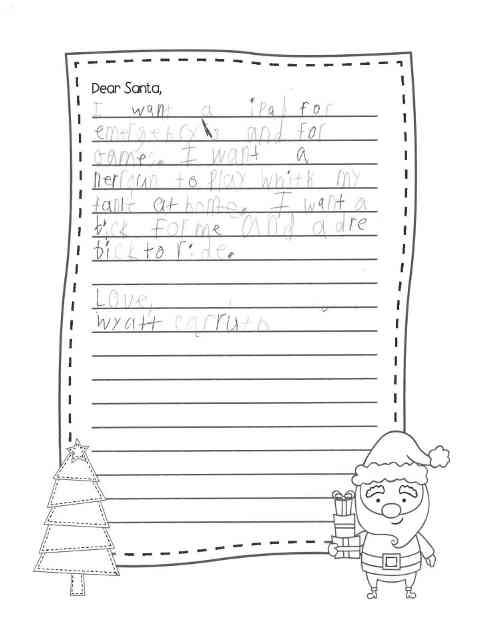 Dear Santa,
I want a ipad for
emergency and for
game. I want a
nerfgun to play whith my
at home. I want a
bick for me and a dre
bick to ride.
Love,
Wyatt